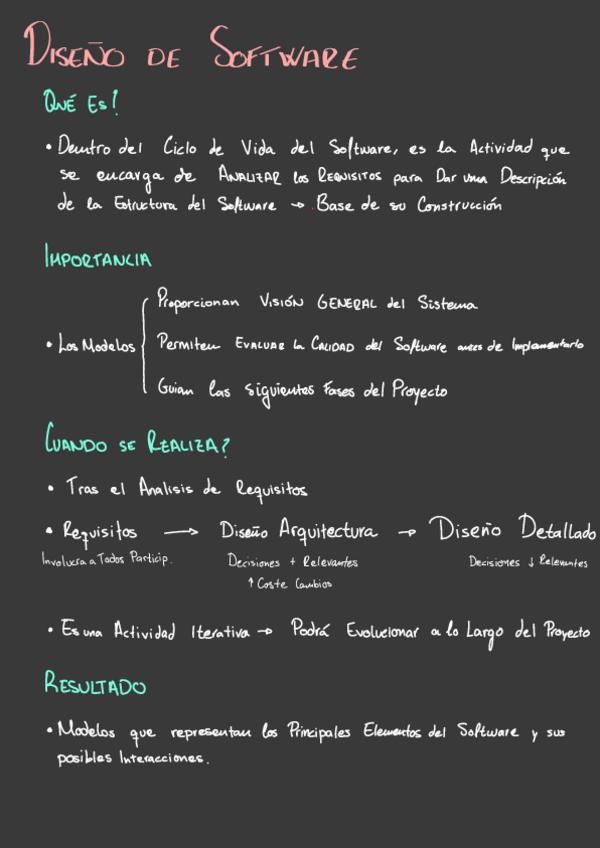 DISEÑO DE SOFTWARE
QUÉ ES!
• Dentro del Ciclo de Vida del Software, es la Actividad que
se encarga de ANALIZAR los REQUISITOS para Dar una Descripción
de la Estructura del Software → Base de su Construcción
IMPORTANCIA
Proporcionan VISIÓN GENERAL del Sistema
• Los Modelos
Permiten EVALUAR la CALIDAD del Software antes de Implementarlo
Guian las siguientes Fases del Proyecto
CUANDO SE REALIZA?
• Tras el Analisis de Requisitos
• Requisitos → Diseño Arquitectura → Diseño Detallado
Involucra a Todos Particip. Decisiones + Relevantes Decisiones ↓ Relevantes
↑ Coste Cambios
• Es una Actividad Iterativa → Podrá Evolucionar a lo Largo del Proyecto
RESULTADO
• Modelos que representan los Principales Elementos del Software y sus
posibles Interacciones.